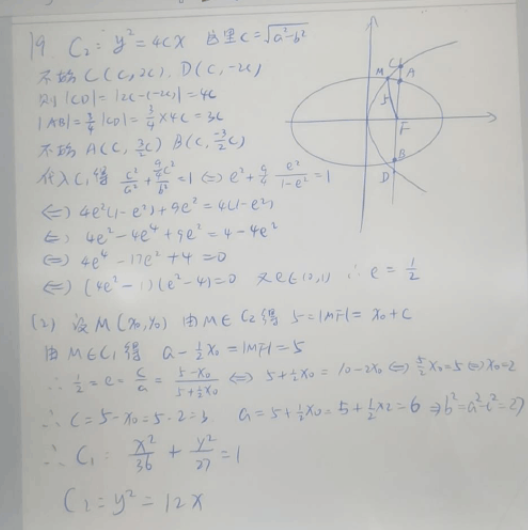 19. C₂: y²=4cx 这里c=√(a²-b²)
不妨C(c,2c). D(c,-2c)
则|CD|=|2c-(-2c)|=4c
|AB|=3/4|CD|=3/4×4c=3c
不妨A(c,3/2c) B(c,-3/2c)
代入C₁得 c²/a²+(9/4c²)/b²=1 ⇔ e²+9/4 e²/(1-e²)=1
⇔ 4e²(1-e²)+9e²=4(1-e²)
⇔ 4e²-4e⁴+9e²=4-4e²
⇔ 4e⁴-17e²+4=0
⇔ (4e²-1)(e²-4)=0 又e∈(0,1) ∴e=1/2
(2) 设M(x₀,y₀) 由M∈C₂得 5=|MF|=x₀+c
由M∈C₁得 a-1/2x₀=|MF|=5
∴1/2=e=c/a=(5-x₀)/(5+1/2x₀) ⇔ 5+1/2x₀=10-2x₀ ⇔ 5/2x₀=5 ⇔ x₀=2
∴c=5-x₀=5-2=3. a=5+1/2x₀=5+1/2×2=6 ⇒ b²=a²-c²=27
∴C₁: x²/36+y²/27=1
C₂=y²=12x
M
C
A
5
F
B
D